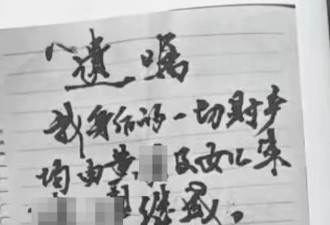 遗嘱
我身后的一切财产
均由黄 及女儿来
继承。